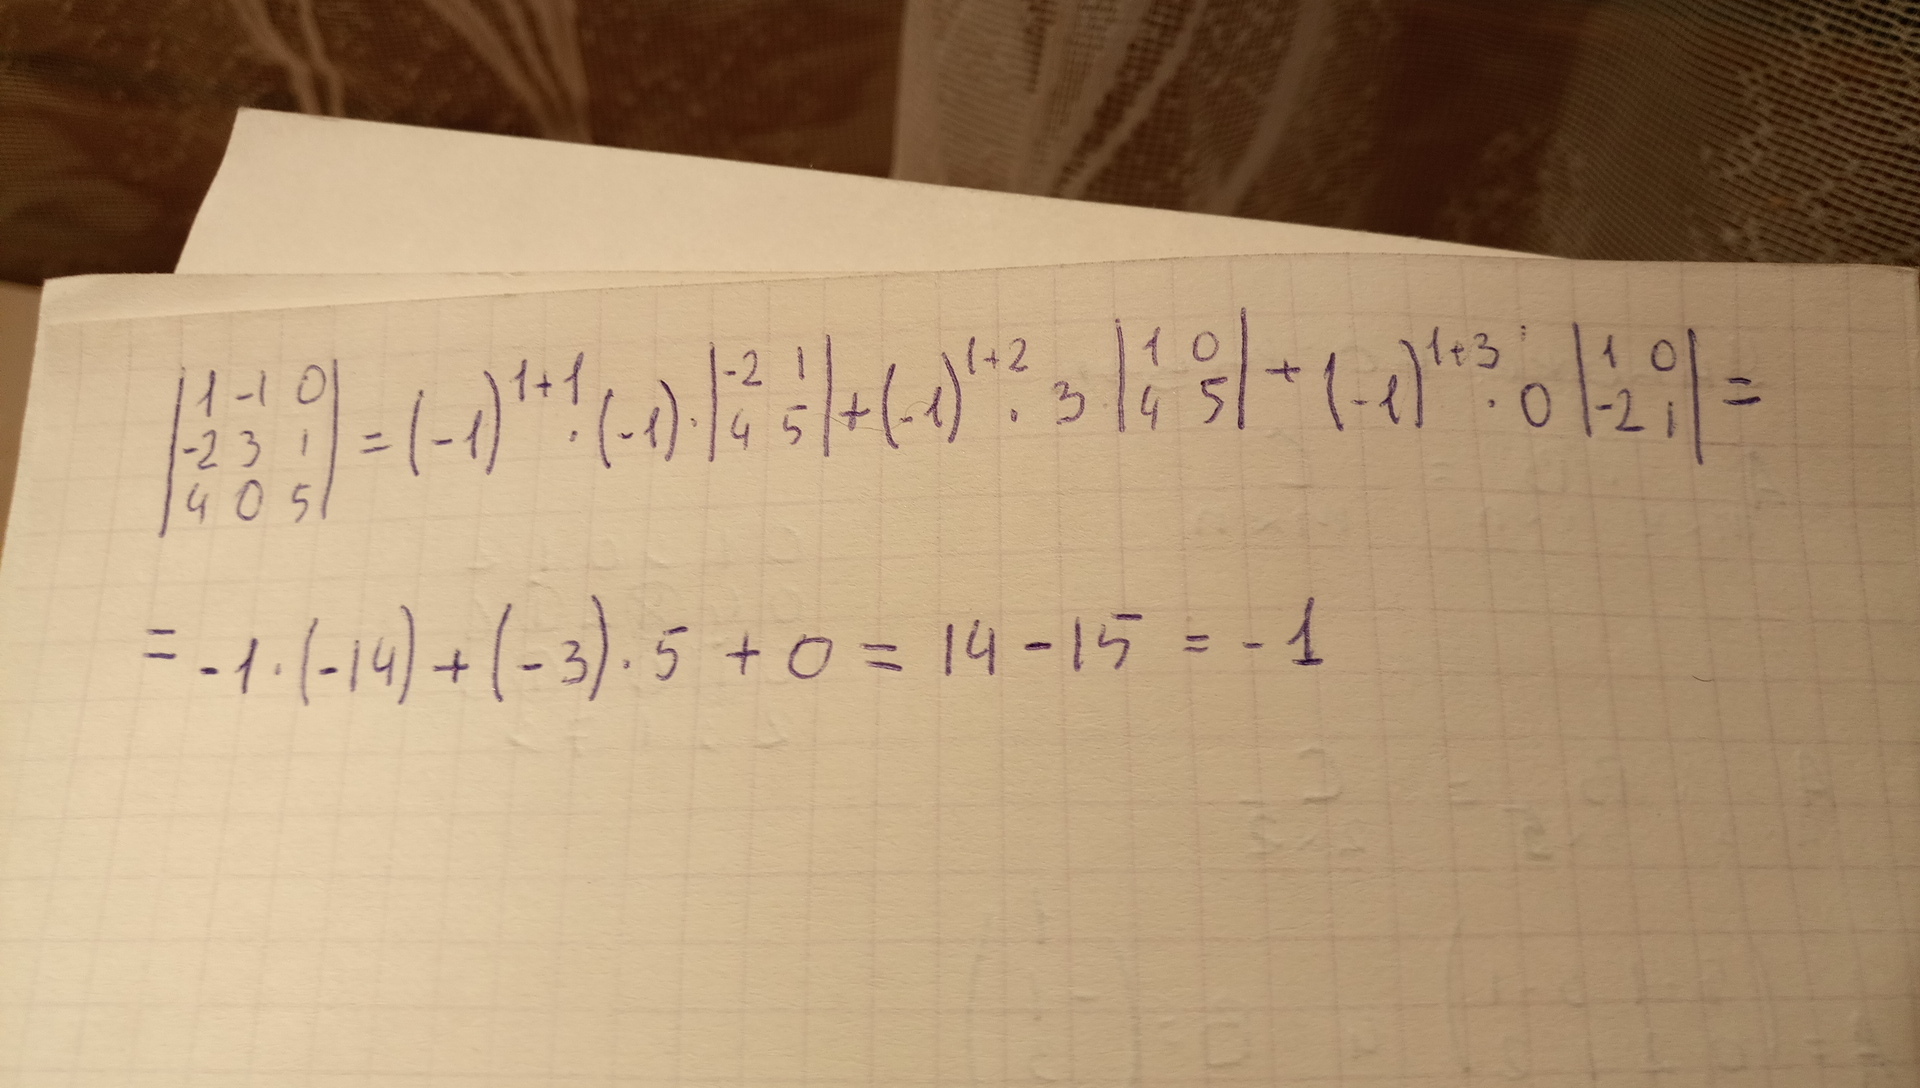 | 1 -1 0 ; -2 3 1 ; 4 0 5 | = (-1)^{1+1} · (-1) · | -2 1 ; 4 5 | + (-1)^{1+2} · 3 | 1 0 ; 4 5 | + (-1)^{1+3} · 0 | 1 0 ; -2 1 | =
= -1 · (-14) + (-3) · 5 + 0 = 14 - 15 = -1